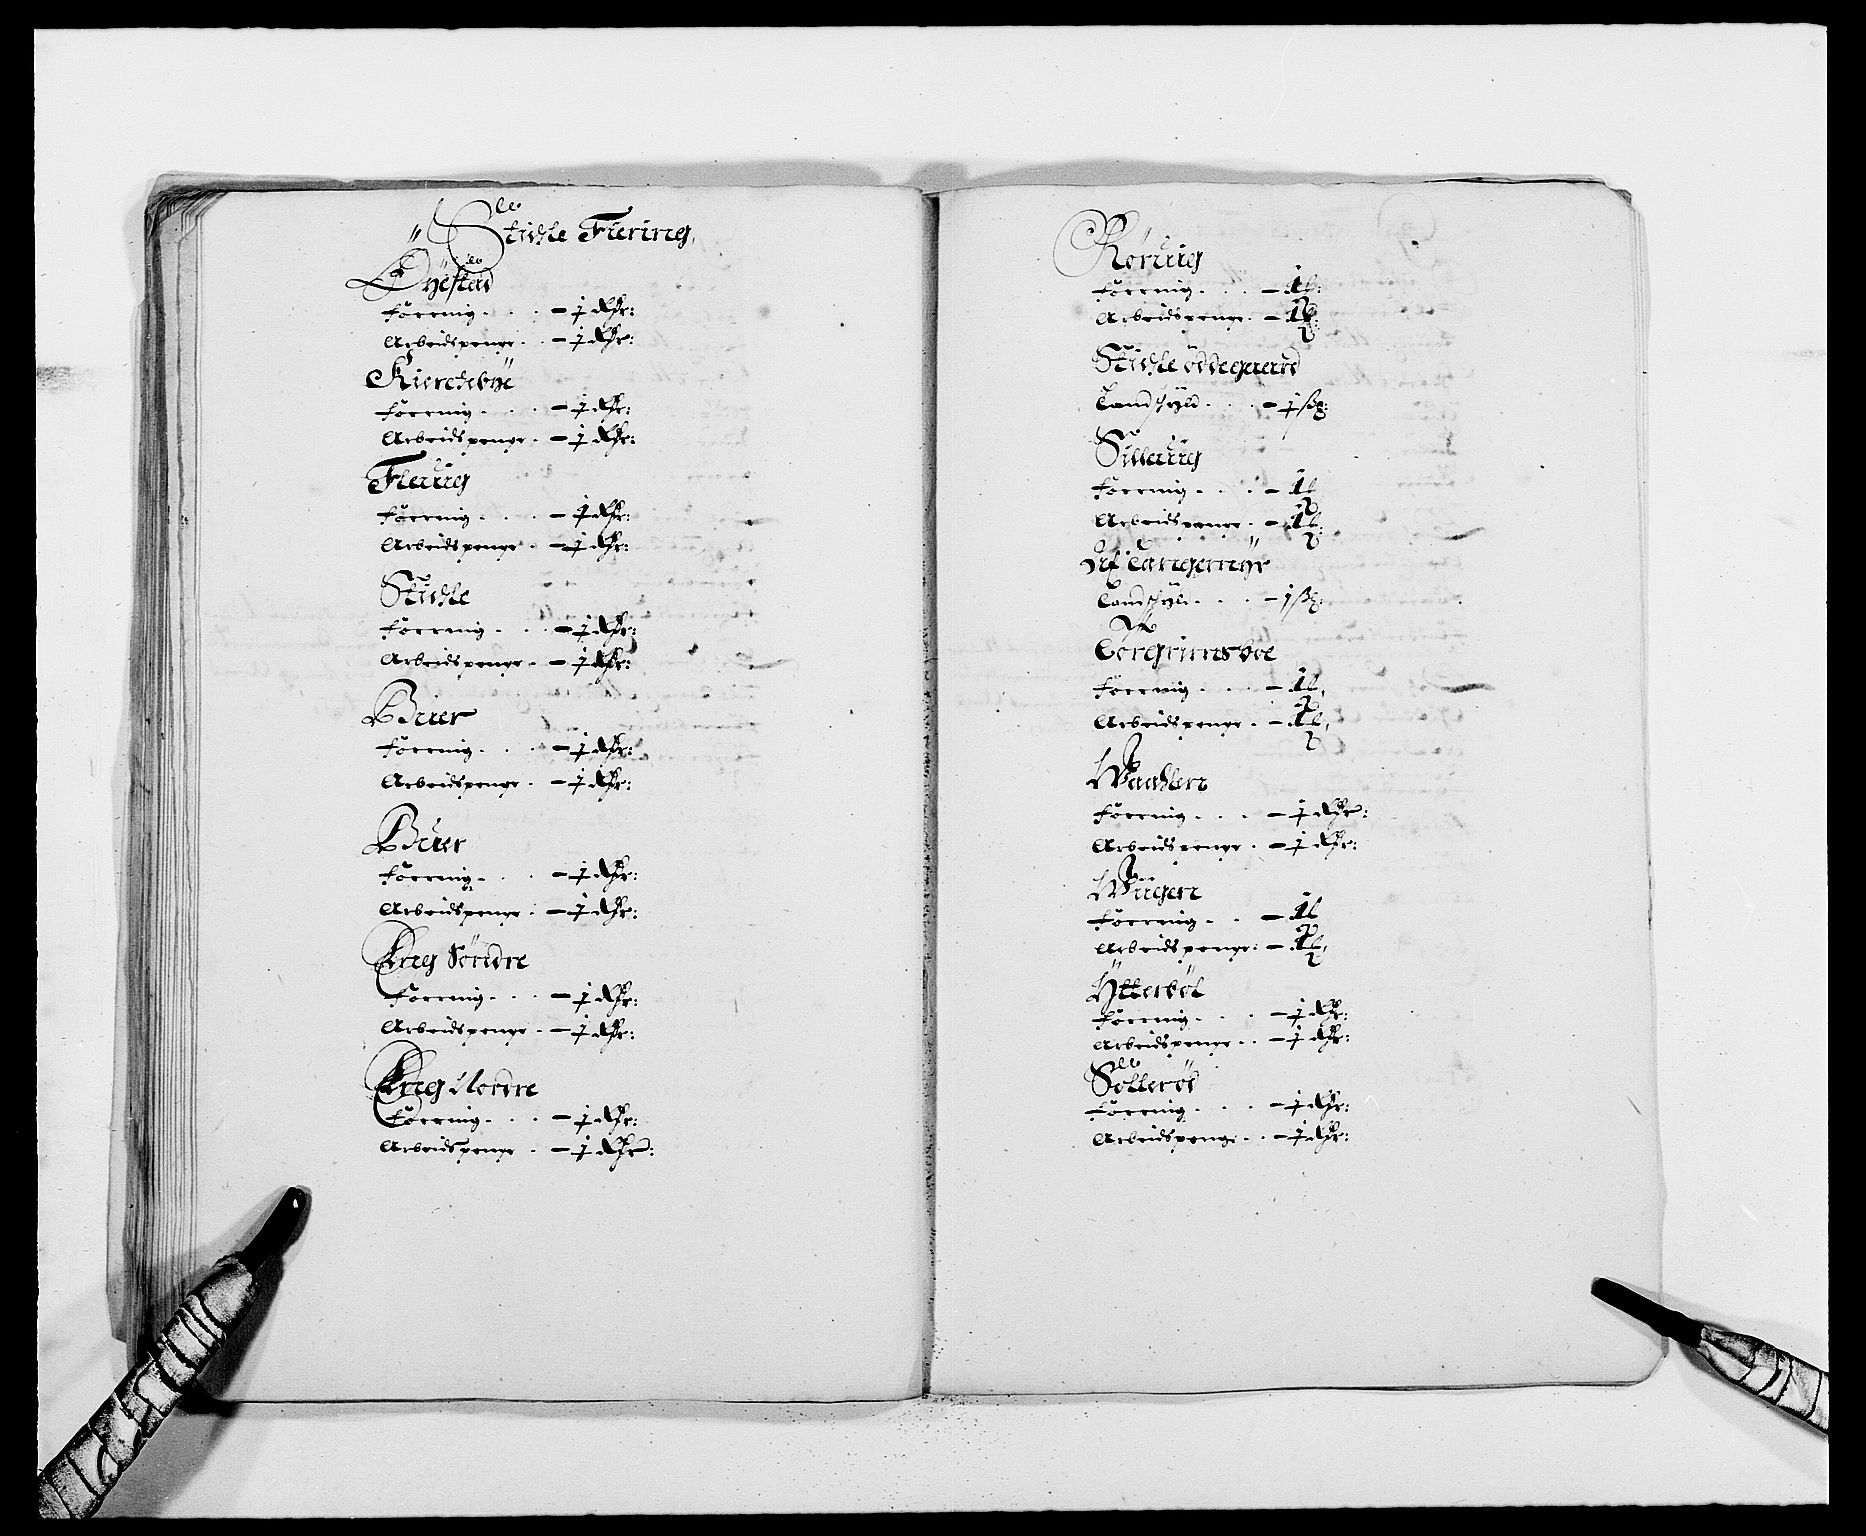 Stichle Fierring,
Øÿestad
Foerring - 1 Rdr:
Arbeidspenge - 1 Rdr:
Kierchebÿe
Foerring - 1 Rdr:
Arbeidspenge - 1 Rdr:
Fleuig
Foerring - 1 Rdr:
Arbeidspenge - 1 Rdr:
Stichle
Foerring - 1 Rdr:
Arbeidspenge - 1 Rdr:
Buer
Foerring - 1 Rdr:
Arbeidspenge - 1 Rdr:
Buer
Foerring - 1 Rdr:
Arbeidspenge - 1 Rdr:
Søndre
Foerring - 1 Rdr:
Arbeidspenge - 1 Rdr:
Nordre
Foerring - 1 Rdr:
Arbeidspenge - 1 Rdr:
Røruig
Foerring - 1/2
Arbeidspenge - 1/2
Stichle øddegaard
Landschyld - 1
Silleuig
Foerring - 1/2
Arbeidspenge - 1/2
Af Langemÿr
Landschyld - 1
Torgrimsboe
Foerring - 1/2
Arbeidspenge - 1/2
Waahlen
Foerring - 1 Rdr:
Arbeidspenge - 1 Rdr:
Wügen
Foerring - 1/2
Arbeidspenge - 1/2
Ÿtterbøl
Foerring - 1 Rdr:
Arbeidspenge - 1 Rdr:
Sollerød
Foerring - 1 Rdr:
Arbeidspenge - 1 Rdr: